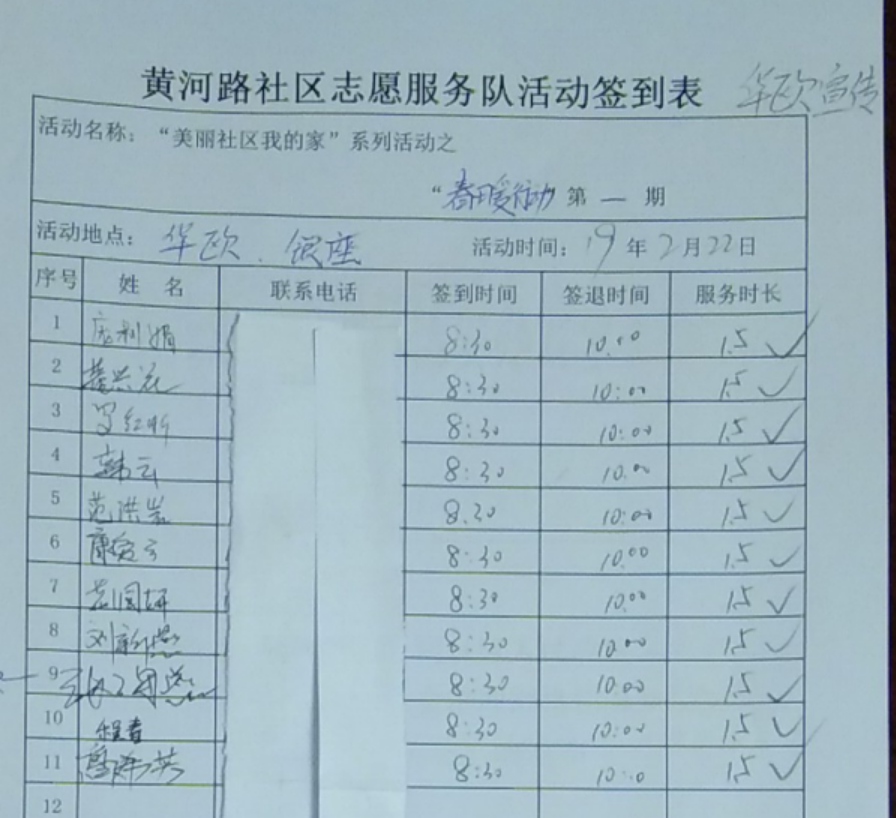 黄河路社区志愿服务队活动签到表 华欧宣传
活动名称：“美丽社区我的家”系列活动之
“春日暖行动 第 一 期
活动地点： 华欧. 银座 活动时间： 19 年 2 月 22 日
序号 姓 名 联系电话 签到时间 签退时间 服务时长
1 庞利娟 8:30 10.00 1.5 ✓
2 8:30 10:00 1.5 ✓
3 8:30 10:00 1.5 ✓
4 韩云 8:30 10.00 1.5 ✓
5 范洪岩 8.30 10:00 1.5 ✓
6 8:30 10.00 1.5 ✓
7 8:30 10.00 1.5 ✓
8 刘新燕 8:30 10.00 1.5 ✓
9 8:30 10:00 1.5 ✓
10 程春 8:30 10:00 1.5 ✓
11 8:30 10:00 1.5 ✓
12